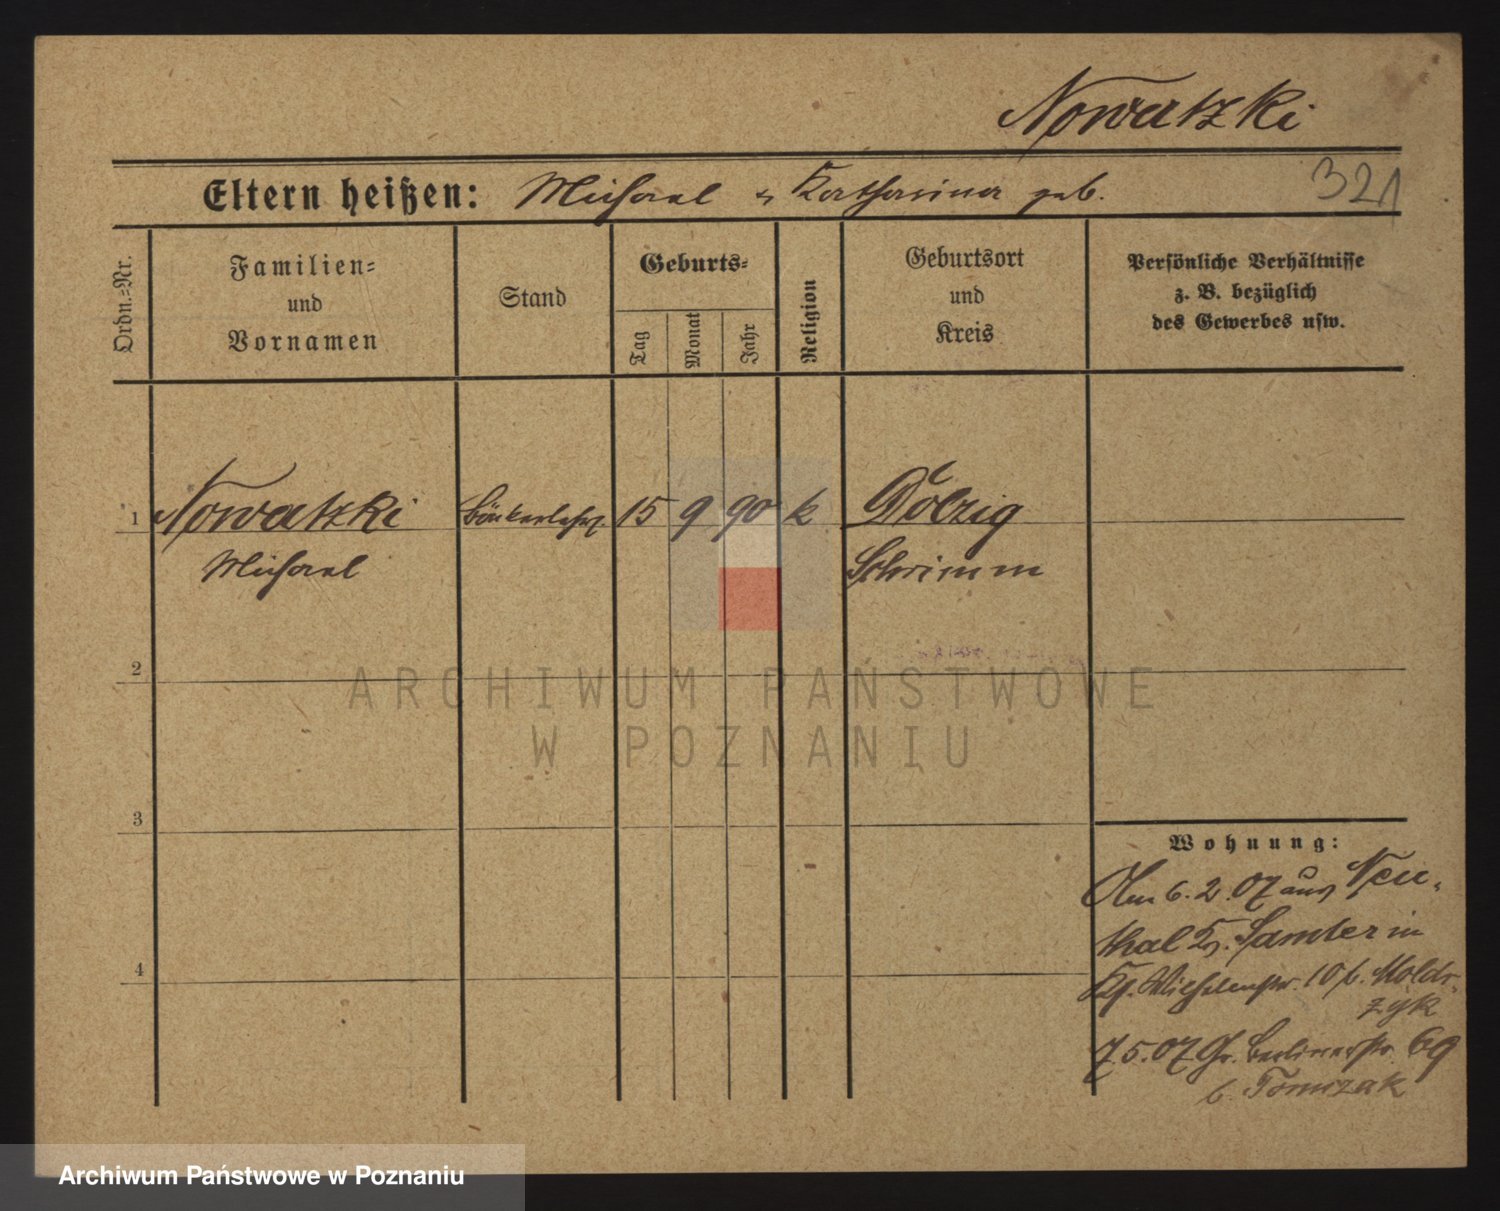 Nowatzki
Eltern heißen: Michael & Katharina geb.
321
Ordn.=Nr.
Familien=
und
Vornamen
Stand
Geburts=
Tag
Monat
Jahr
Religion
Geburtsort
und
Kreis
Persönliche Verhältnisse
z. B. bezüglich
des Gewerbes usw.
1 Nowatzki Bäckerlehrl. 15 9 90 k Dolzig
Michael Schrimm
2
ARCHIWUM PAŃSTWOWE
W POZNANIU
3
Wohnung:
Am 6. 2. 07 aus Neu-
thal Kr. Samter in
Wilhelmstr. 10 b. Moldr-
zyk
7. 5. 07 Gr. Berlinerstr. 69
b. Tomczak
4
Archiwum Państwowe w Poznaniu